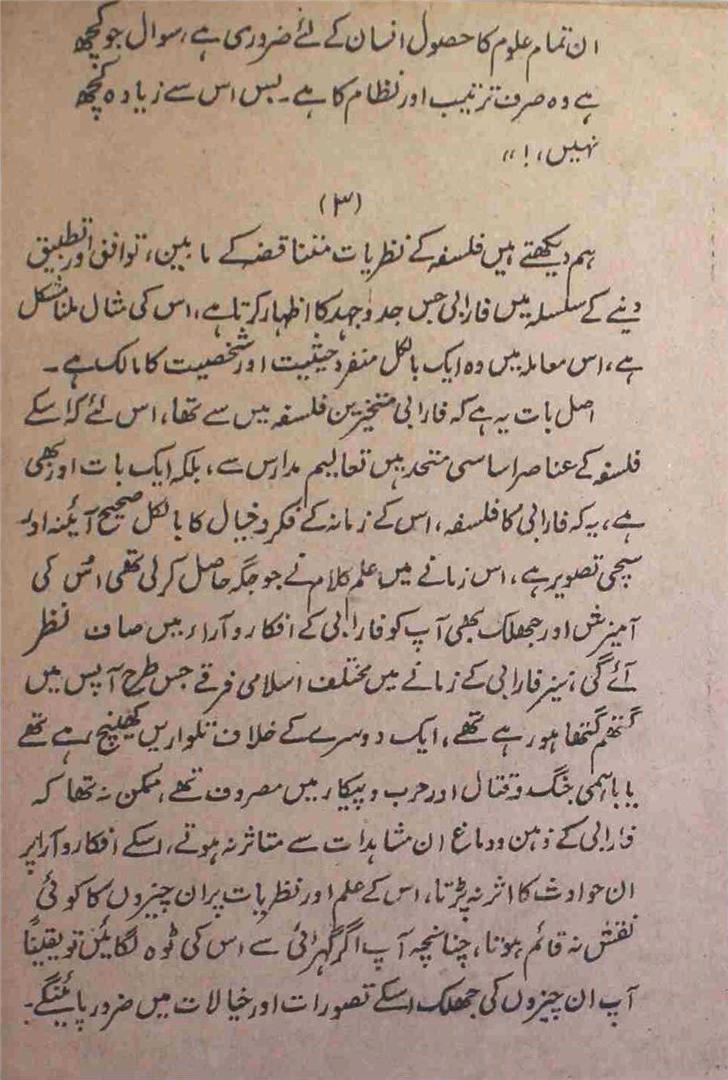 ان تمام علوم کا حصول انسان کے لئے ضروری ہے، سوال جو کچھ
ہے وہ صرف ترتیب اور نظام کا ہے۔ بس اس سے زیادہ کچھ
نہیں،!،،
(۳)
ہم دیکھتے ہیں فلسفہ کے نظریات متناقضہ کے مابین، توافق اور تطبیق
دینے کے سلسلہ میں فارابی جس جدوجہد کا اظہار کرتا ہے، اس کی مثال ملنا مشکل
ہے، اس معاملہ میں وہ ایک بالکل منفرد حیثیت اور شخصیت کا مالک ہے۔
اصل بات یہ ہے کہ فارابی متخیرین فلسفہ میں سے تھا، اس لئے کہ اسکے
فلسفہ کے عناصر اساسی متحد ہیں تعالیم مدارس سے، بلکہ ایک بات اور بھی
ہے، یہ کہ فارابی کا فلسفہ، اس کے زمانہ کے فکر و خیال کا بالکل صحیح آئینہ اور
سچی تصویر ہے، اس زمانے میں علم کلام نے جو جگہ حاصل کر لی تھی اُس کی
آمیزش اور جھلک بھی آپ کو فارابی کے افکار و آراء میں صاف نظر
آئے گی، نیز فارابی کے زمانے میں مختلف اسلامی فرقے جس طرح آپس میں
گتھم گتھا ہو رہے تھے، ایک دوسرے کے خلاف تلواریں کھینچ رہے تھے
یا باہمی جنگ و قتال اور حرب و پیکار میں مصروف تھے، ممکن نہ تھا کہ
فارابی کے ذہن و دماغ ان مشاہدات سے متاثر نہ ہوتے، اسکے افکار و آرا پر
ان حوادث کا اثر نہ پڑتا، اس کے علم اور نظریات پر ان چیزوں کا کوئی
نقش نہ قائم ہوتا، چنانچہ آپ اگر گہرائی سے اس کی ٹوہ لگائیں تو یقیناً
آپ ان چیزوں کی جھلک اسکے تصورات اور خیالات میں ضرور پائینگے۔